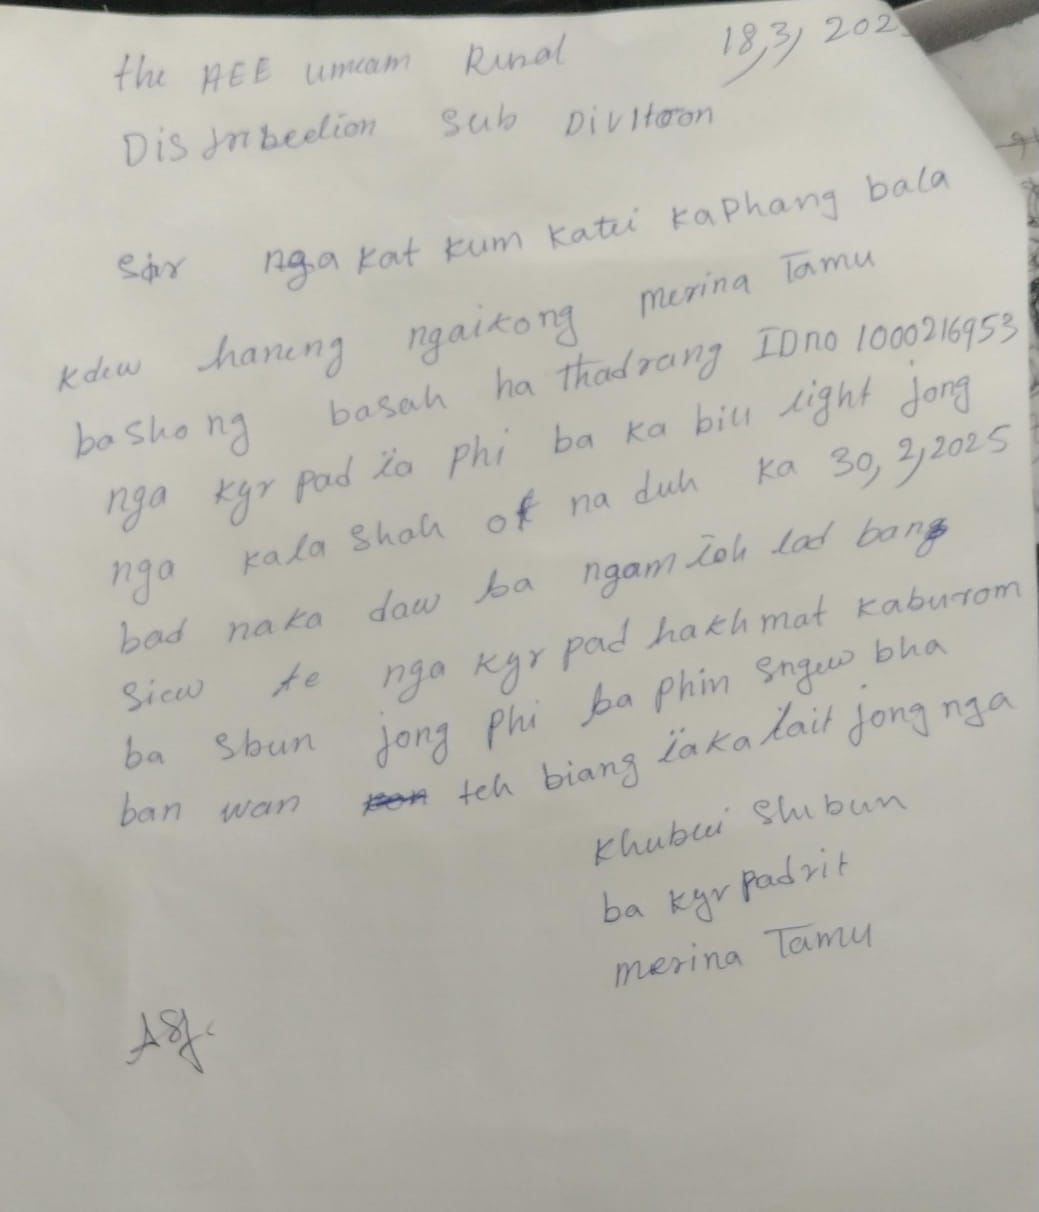 the AEE umeam Rural 18,3, 202
Distribeetion Sub Divltoon
Sir nga kat kum katei kaphang bala
kdew haneng ngaikong merina Tamu
bashong basah ha thadrang IDno 1000216953
nga kyr pad ïa phi ba ka bill light jong
nga kala shah ot na duh ka 30, 2, 2025
bad naka daw ba ngam ïoh lad bang
siew te nga kyr pad hakhmat kaburom
ba sbun jong phi ba phin sngew bha
ban wan teh biang ïaka lait jong nga
khublei shibun
ba kyr padrit
merina Tamu